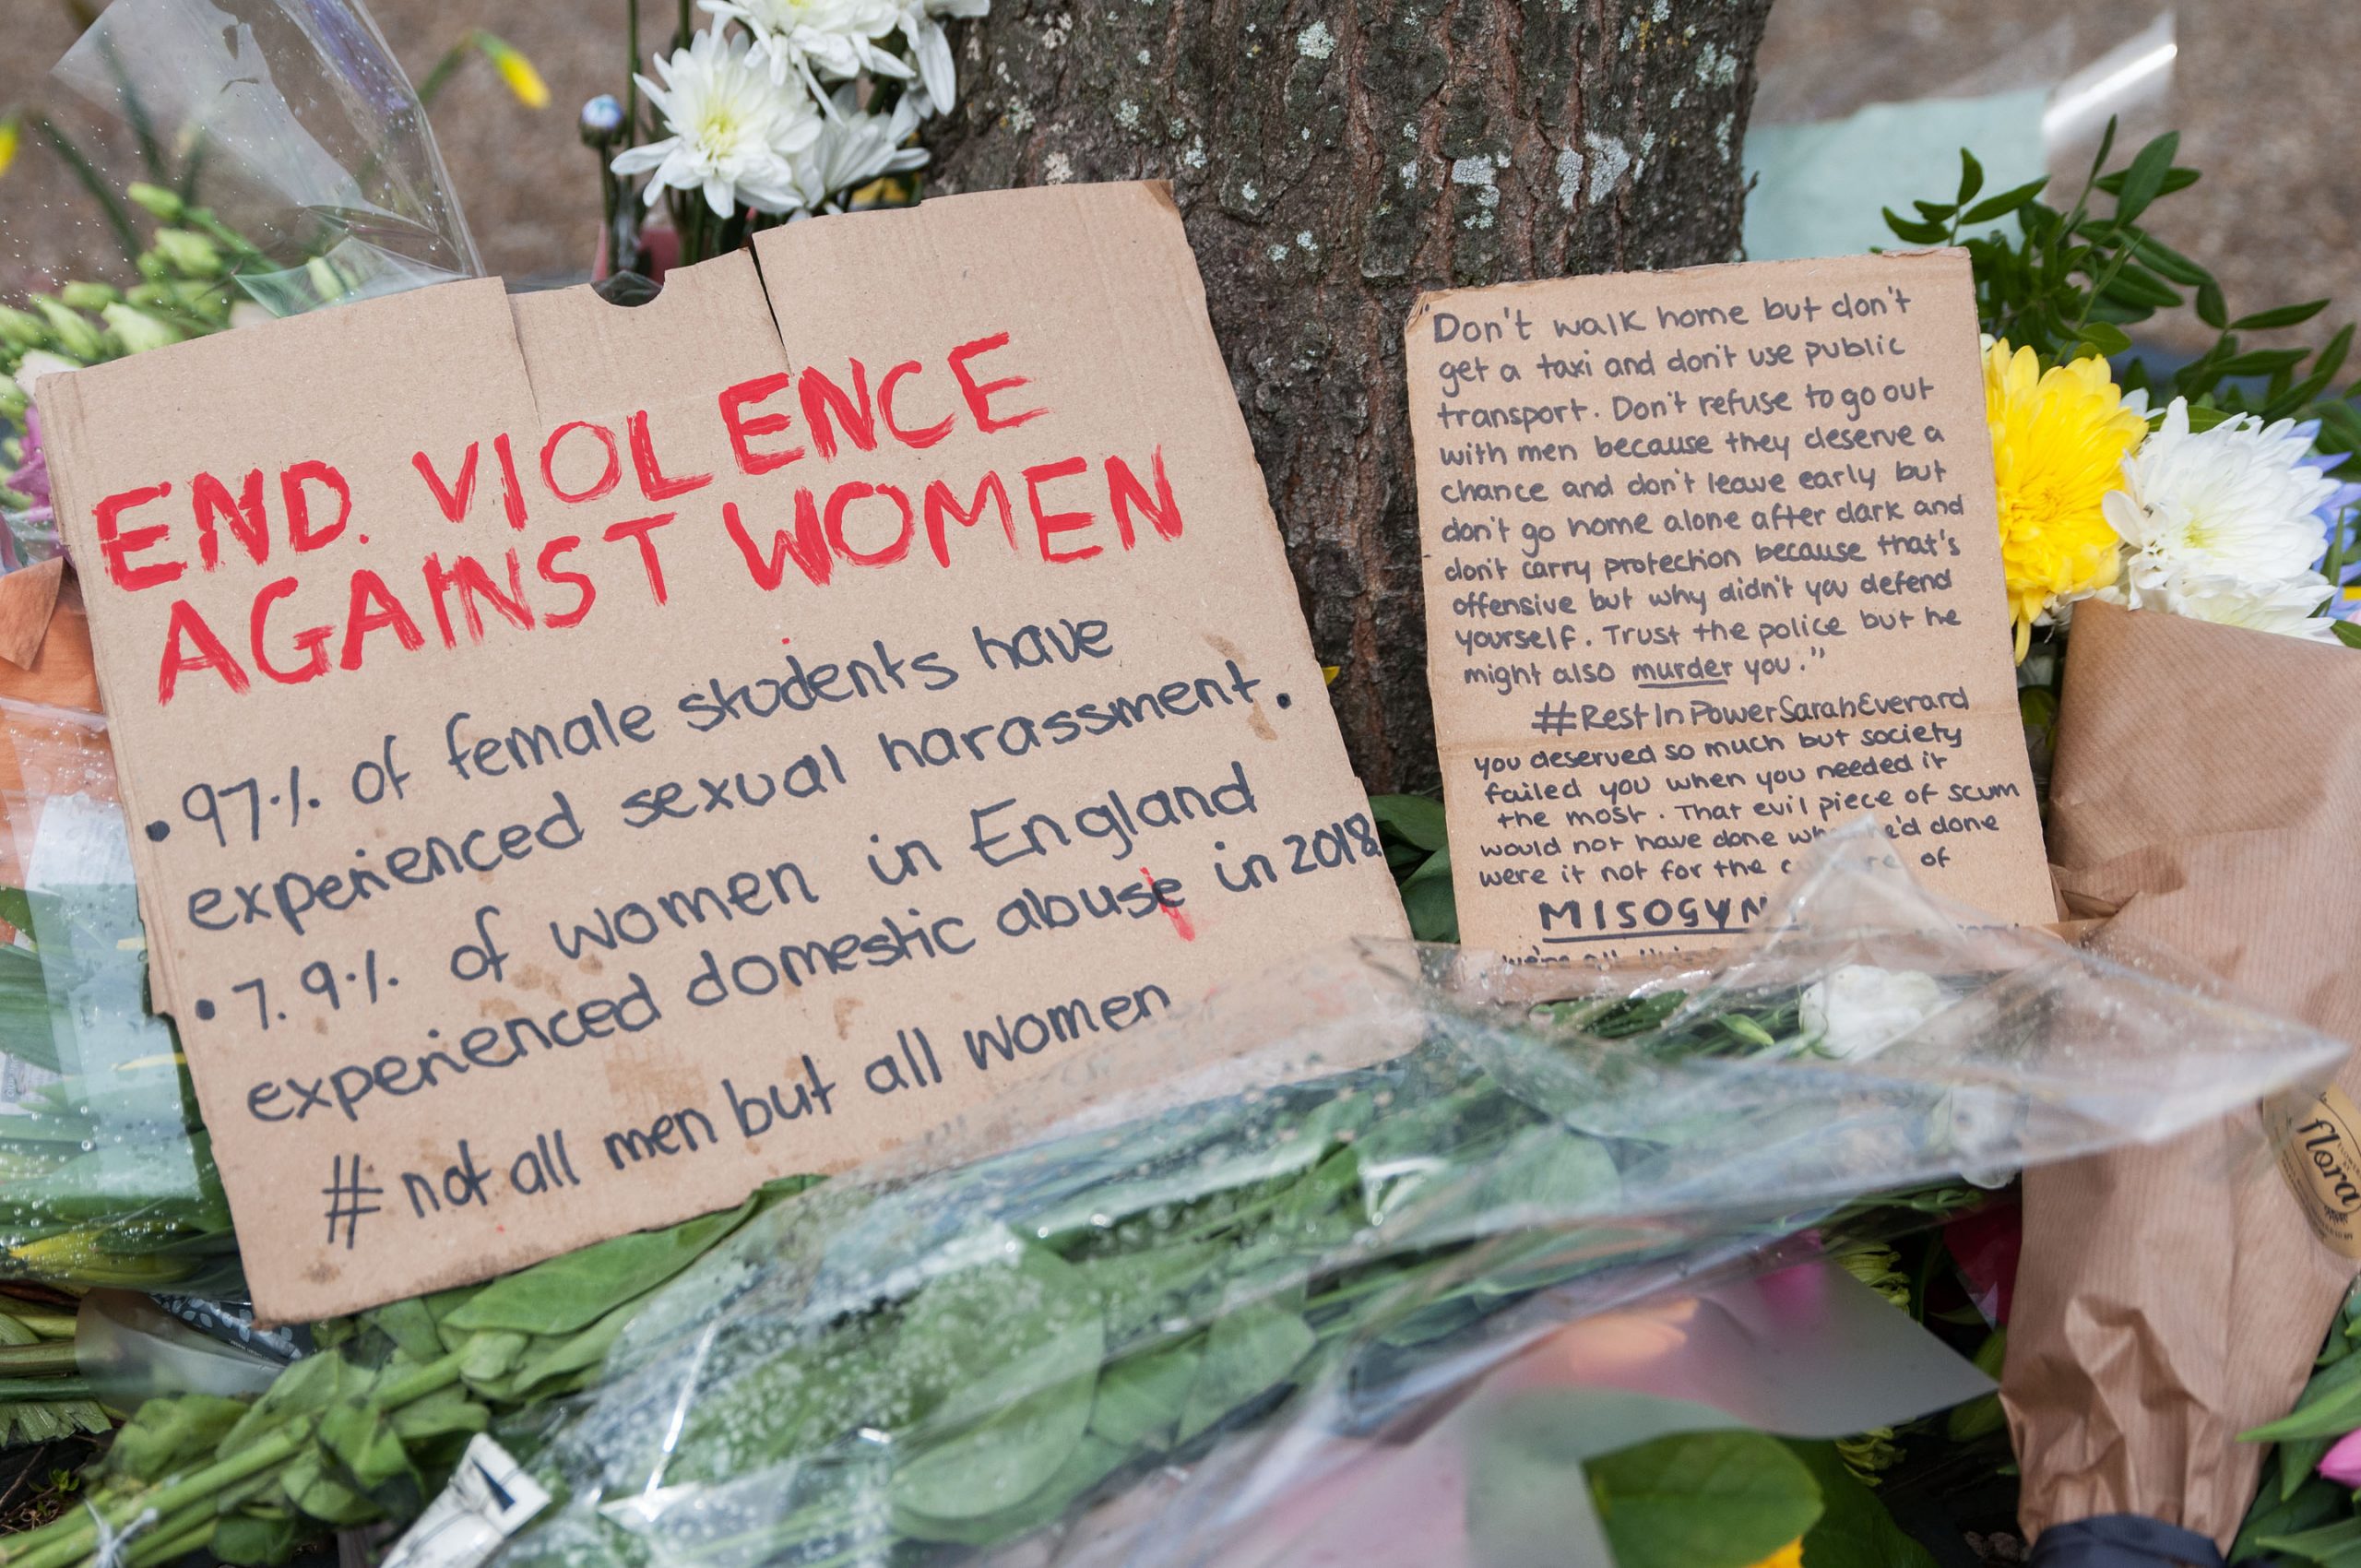 END VIOLENCE
AGAINST WOMEN
• 97% of female students have
experienced sexual harassment.
• 7.9% of women in England
experienced domestic abuse in 2018
# not all men but all women
"Don't walk home but don't
get a taxi and don't use public
transport. Don't refuse to go out
with men because they deserve a
chance and don't leave early but
don't go home alone after dark and
don't carry protection because that's
offensive but why didn't you defend
yourself. Trust the police but he
might also murder you."
#RestInPowerSarahEverard
you deserved so much but society
failed you when you needed it
the most. That evil piece of scum
would not have done done
were it not for the of
we're all
flora